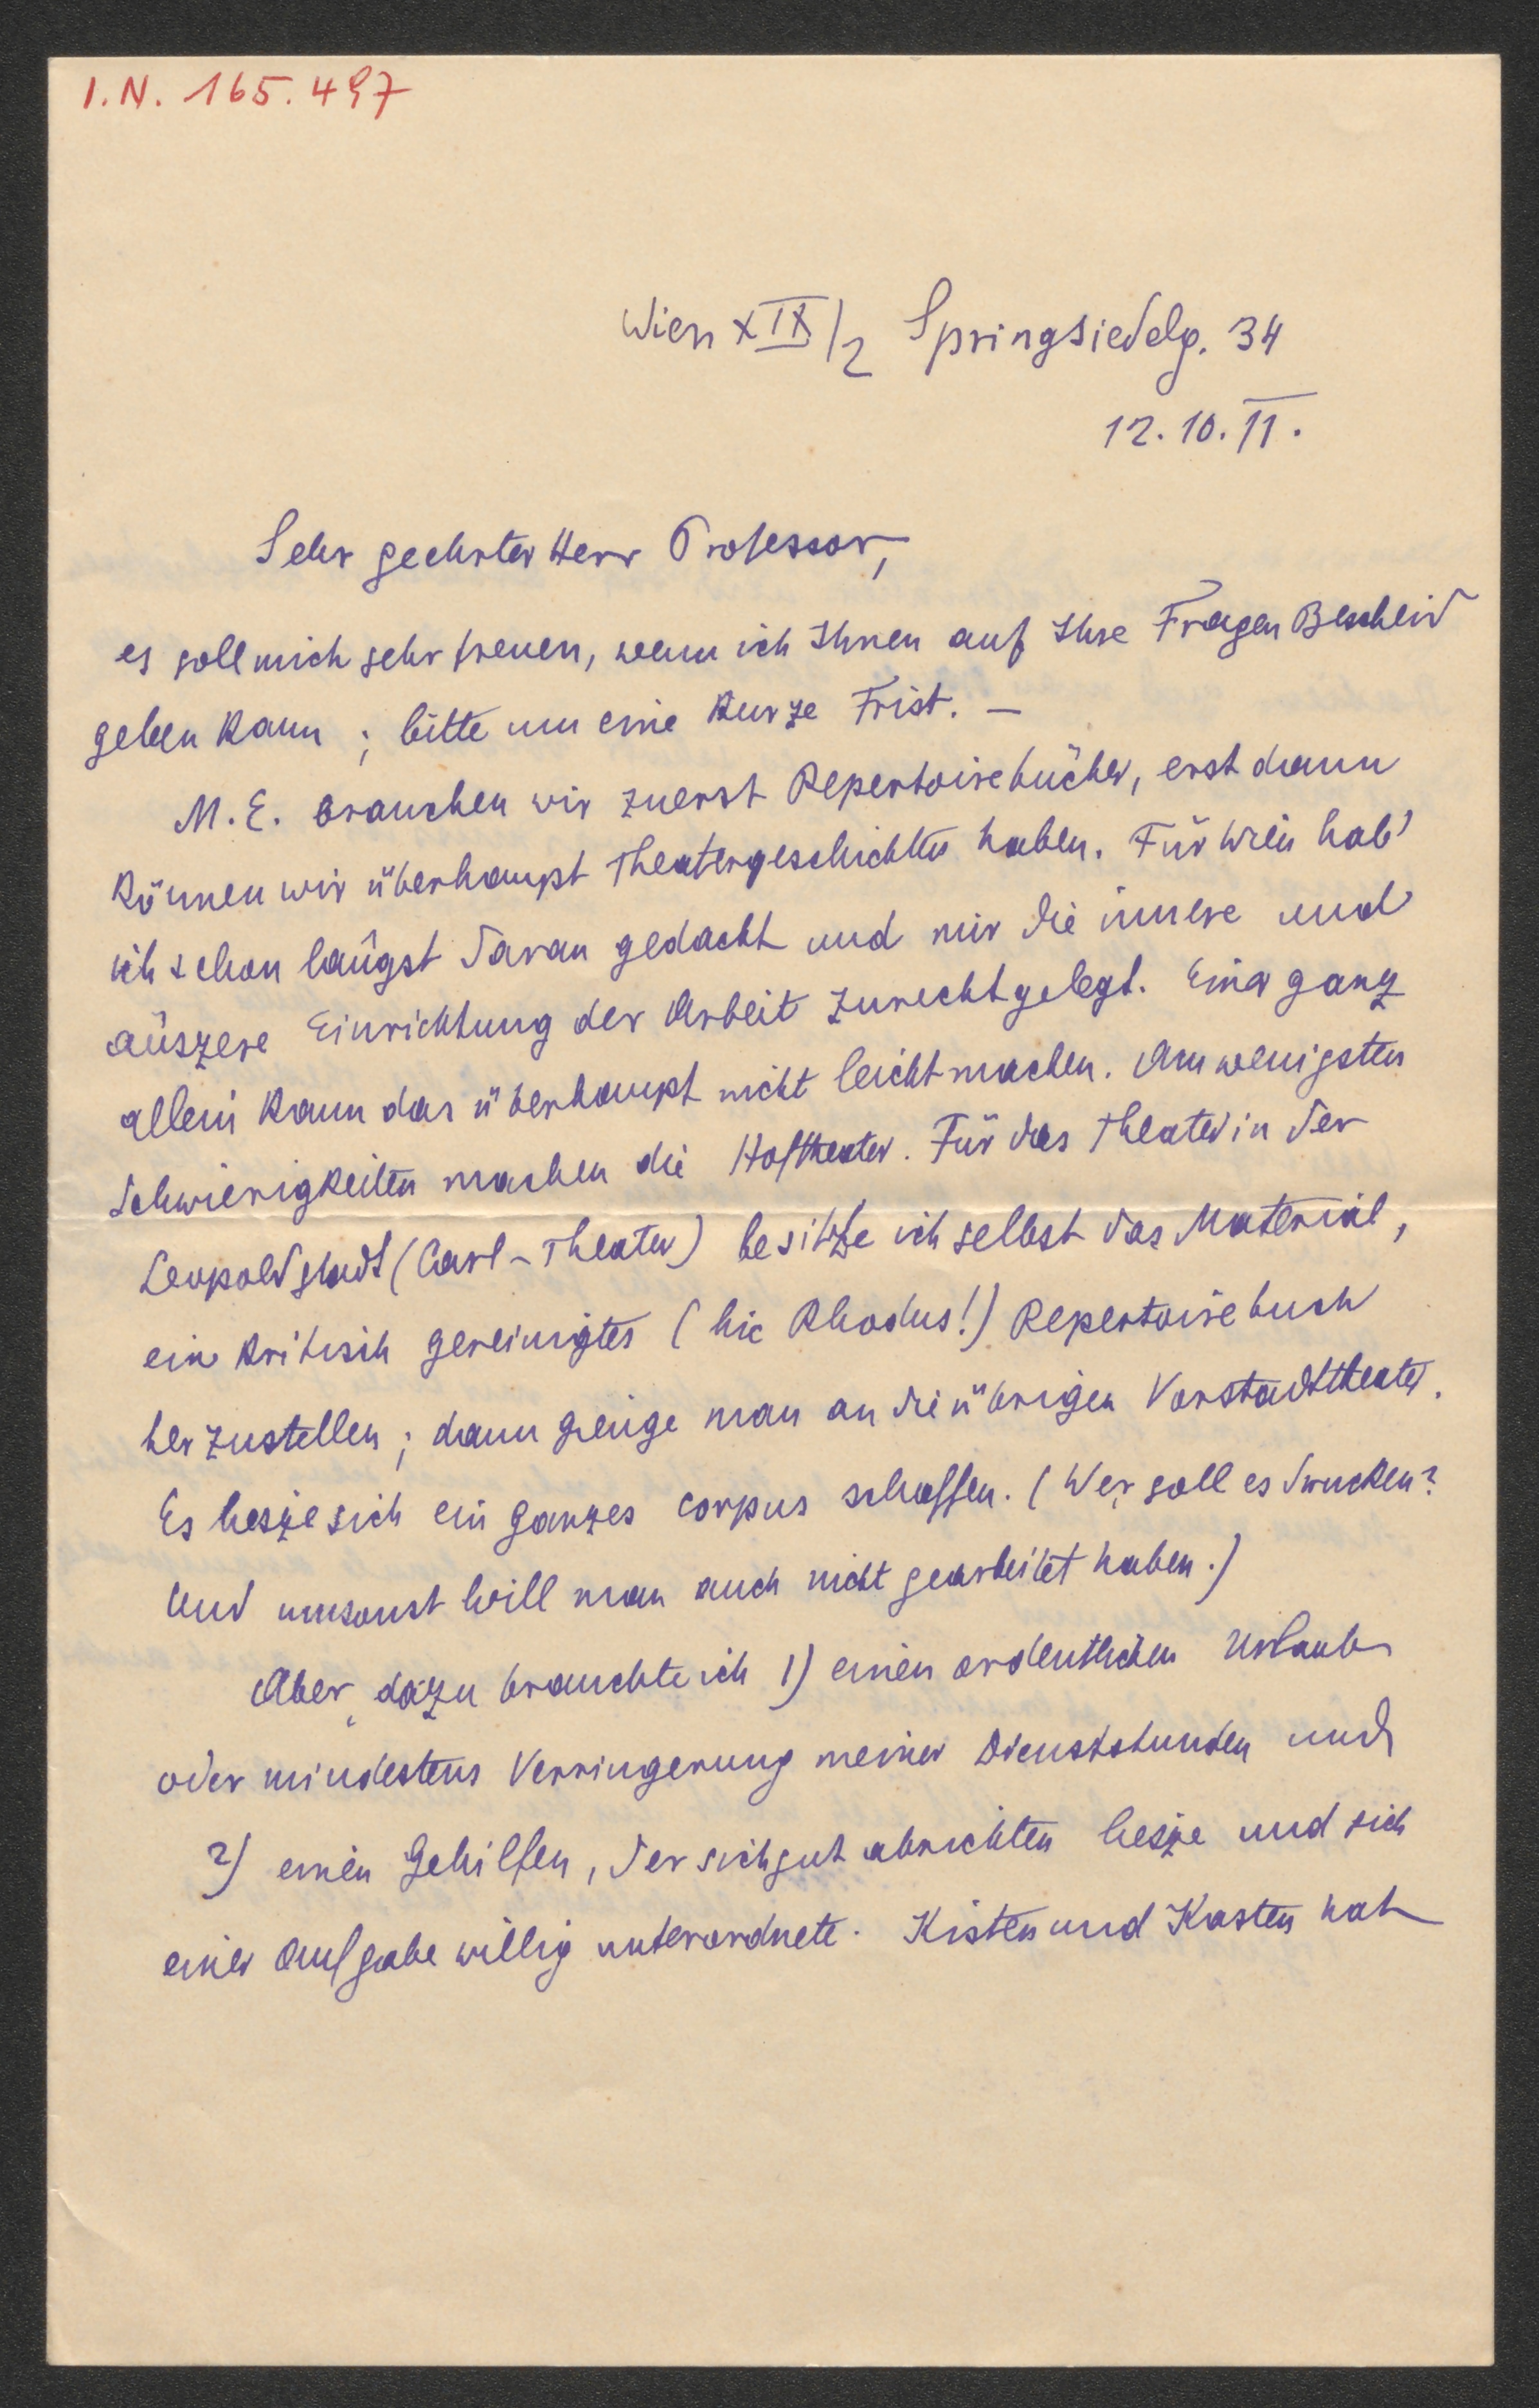 I.N. 165.497
Wien XIX/2 Springsiedelg. 34
12.10.11.
Sehr geehrter Herr Professor,
es soll mich sehr freuen, wenn ich Ihnen auf Ihre Fragen Bescheid
geben kann; bitte um eine kurze Frist. —
M. E. brauchen wir zuerst Repertoirebücher, erst dann
können wir überhaupt Theatergeschichten haben. Für Wien hab'
ich schon längst daran gedacht und mir die innere und
äuszere Einrichtung der Arbeit zurechtgelegt. Einer ganz
allein kann das überhaupt nicht leicht machen. Am wenigsten
Schwierigkeiten machen die Hoftheater. Für das Theater in der
Leopoldstadt (Carl-Theater) besitze ich selbst das Material,
ein kritisch gereinigtes (hic Rhodus!) Repertoirebuch
herzustellen; dann gienge man an die übrigen Vorstadttheater.
Es liesze sich ein ganzes corpus schaffen. (Wer soll es drucken?
Und umsonst will man auch nicht gearbeitet haben.)
Aber dazu brauchte ich 1) einen ordentlichen Urlaub
oder mindestens Verringerung meiner Dienststunden und
2) einen Gehilfen, der sich gut abrichten liesze und sich
einer Aufgabe willig unterordnete. Kisten und Kasten hat